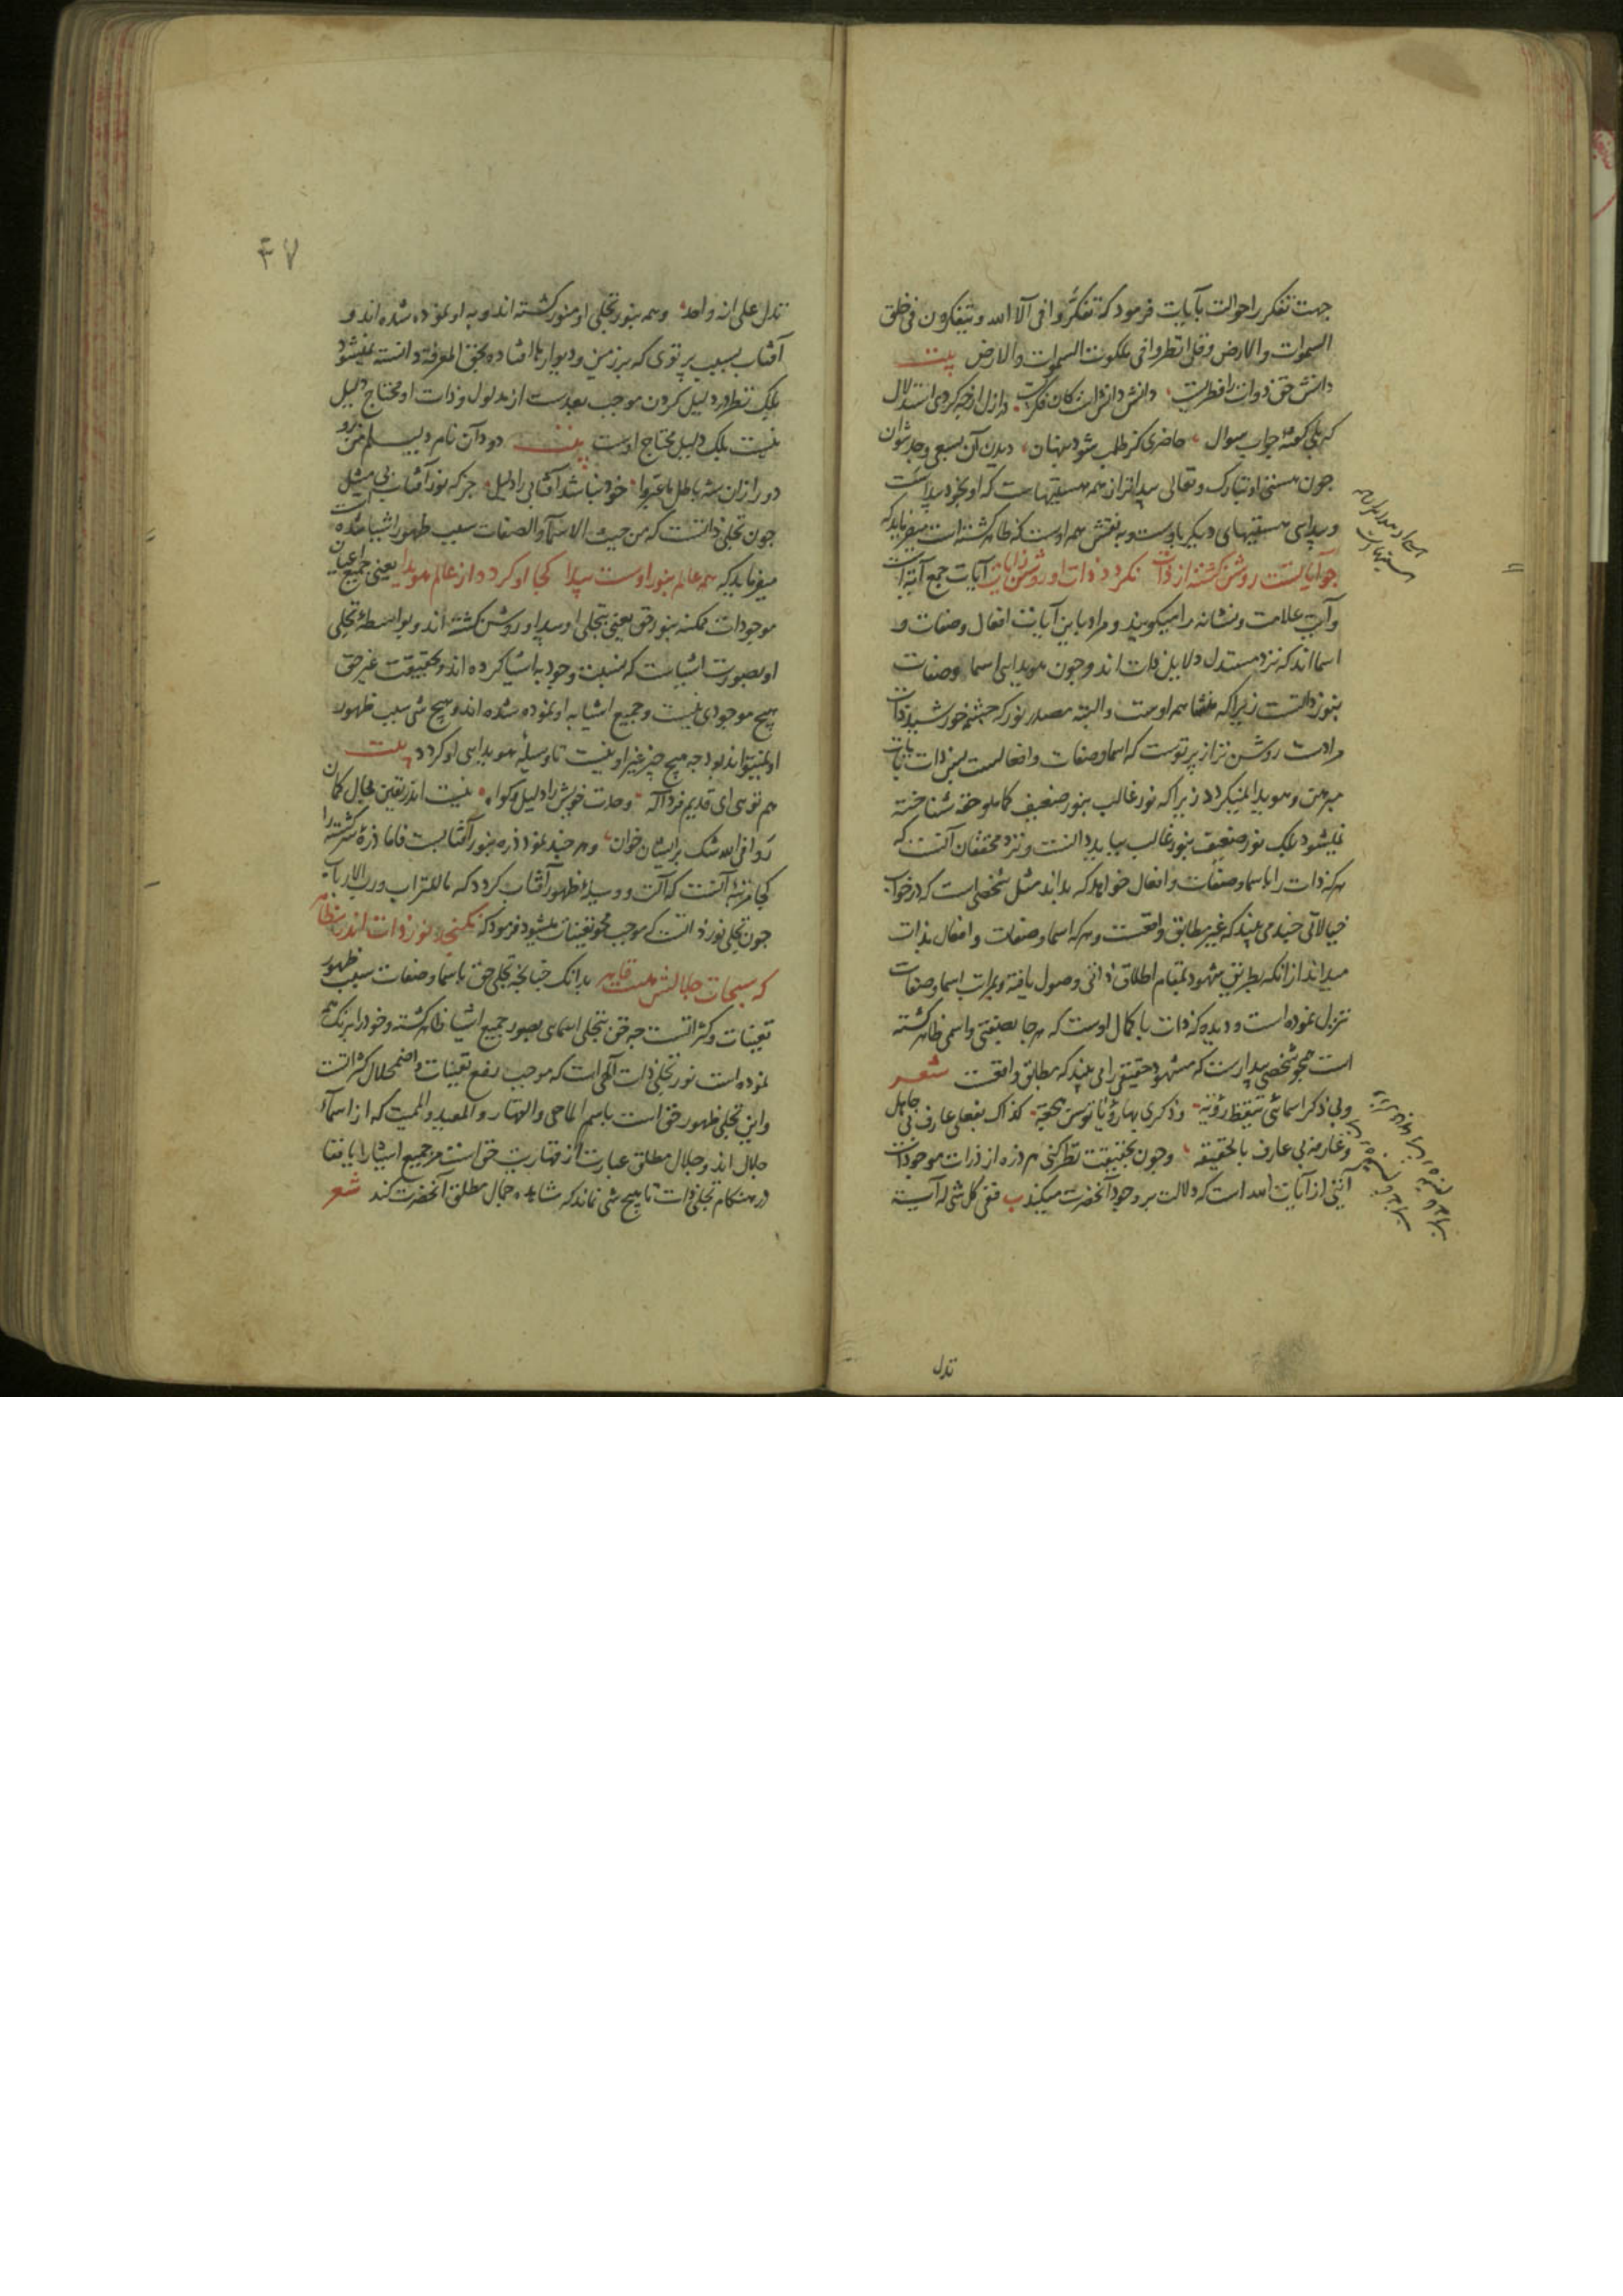 جهت تفکر را حوالت بآیات فرمود که تفکروا فی آلاء الله و یتفکرون فی خلق
السموات والارض وقل انظروا فی ملکوت السموات والارض بیت
دانش حق ذوات را فطریست دانش دانش است کان فکریست در ازل از چه کردی استدلال
که بلی گفتهٔ جواب سوال حاضری کز طلب شود پنهان دیدن آن بسعی وجد نتوان
چون هستی او تبارک و تعالی پیداتر از همه هستیهاست که او بخود پیداست
و پیدایی هستیهای دیگر باوست و به نقش همه اوست که ظاهر گشته است میفرماید که
چو آیاتست روشن گشته از ذات نکردد ذات او روشن ز آیات آیات جمع آیة است
وآیت علامت و نشانه را میکویند و مراد باین آیات افعال وصفات و
اسمااند که نزد مستدل دلایل ذات اند و چون هویدایی اسما وصفات
بنور ذاتست زیرا که منشا همه اوست و البته مصدر نور که چشمه خورشید ذات
مرادست روشن تر از پرتوست که اسما وصفات و افعالست پس ذات بآیات
مبرهن و هویدا نمیکردد زیرا که نور غالب بنور ضعیف کماهو حقه شناخته
نمیشود بلک نور ضعیف بنور غالب بباید دانست و نزد محققان آنست که
هرکه ذات را باسما وصفات و افعال خواهد که بداند مثل شخصی است که در خواب
خیالاتی چند می بیند که غیر مطابق واقعست و هرکه اسما وصفات و افعال بذات
میداند از آنکه بطریق شهود بمقام اطلاق ذاتی وصول یافته و بمراتب اسما وصفات
تنزل نموده است و دیده که ذات با کمال اوست که هر جا بصفتی و اسمی ظاهر گشته
است همچو شخصی بیدارست که مشهود حقیقی را می بیند که مطابق واقعست شعر
ولی ذکر اسمائی تیقظ رؤیة وذکری بها رؤیا توسن هجعة کذاک بفعلی عارفی بی جاهل
وعارفه بی عارف بالحقیقه وچون بحقیقت نظر کنی هر ذره از ذرات موجودات
آیتی از آیات الله است که دلالت بر وجود آنحضرت میکند ففی کل شی له آیة
تدل
۴۷
تدل علی انه واحد وهمه بنور تجلی او منور کشته اند و به او نموده شده اند و
آفتاب بسبب پرتوی که بر زمین و دیوارها افتاده بحق المعرفة دانسته نمیشود
بلک نظر در دلیل کردن موجب بعدست از مدلول و ذات او محتاج دلیل
نیست بلک دلیل محتاج اوست بیت
دور ازان شه باطل ما عبروا خود نباشد آفتابی را دلیل جز که نور آفتاب
چون تجلی ذاتست که من حیث الاسماء والصفات سبب ظهور اشیا شده
میفرماید که همه عالم بنور اوست پیدا کجا او کردد از عالم هویدا یعنی جمیع اعیان
موجودات ممکنه بنور حق یعنی بتجلی او پیدا و روشن کشته اند و بواسطهٔ تجلی
او بصورت اشیاست که نسبت وجود به اشیا کرده اند و بحقیقت غیر حق
هیچ موجودی نیست و جمیع اشیا به او نموده شده اند و هیچ شی سبب ظهور
او نمیتواند بود چه هیچ چیز غیر او نیست تا وسیلهٔ هویدایی او کردد بیت
هم توی ای قدیم فرد اله وحدت خویش را دلیل و کواه
و هر چند نمود ذره بنور آفتابست فاما ذرهٔ سرکشته را
کجا مرتبه آنست که آلت و وسیلهٔ ظهور آفتاب کردد که ما للتراب و رب الارباب
چون تجلی نور ذاتست که موجب محو تعینات میشود فرمود که نکنجد نور ذات اندر مظاهر
که سبحات جلالش هست قاهر بدانک چنانچه تجلی حق باسما وصفات سبب ظهور
تعینات و کثراتست چه حق بتجلی اسمایی بصور جمیع اشیا ظاهر کشته و خود را برنک همه
نموده است نور تجلی ذات الهی است که موجب رفع تعینات و اضمحلال کثراتست
و این تجلی ظهور حق است باسم الماحی والقهار والمعید والممیت که از اسماء
جلال اند و جلال مطلق عبارت از قهاریت حق است مر جمیع اشیا را بافنا
در هنکام تجلی ذات تا هیچ شی نماند که مشاهده جمال مطلق آنحضرت کند شعر